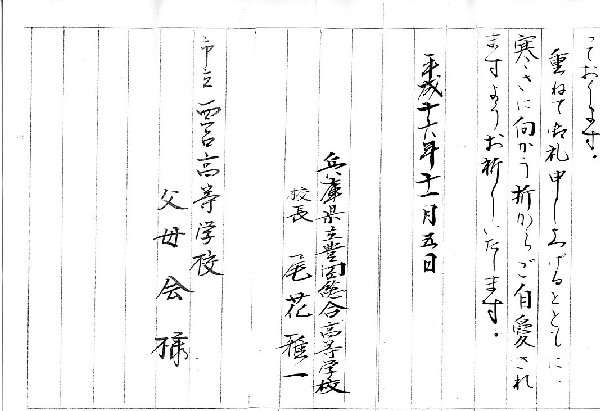 っております。
重ねて御礼申し上げるとともに、
寒さに向かう折からご自愛され
ますようお祈りいたします。
平成十六年十一月五日
兵庫県立豊岡総合高等学校
校長 尾花雅一
市立西宮高等学校
父母会様